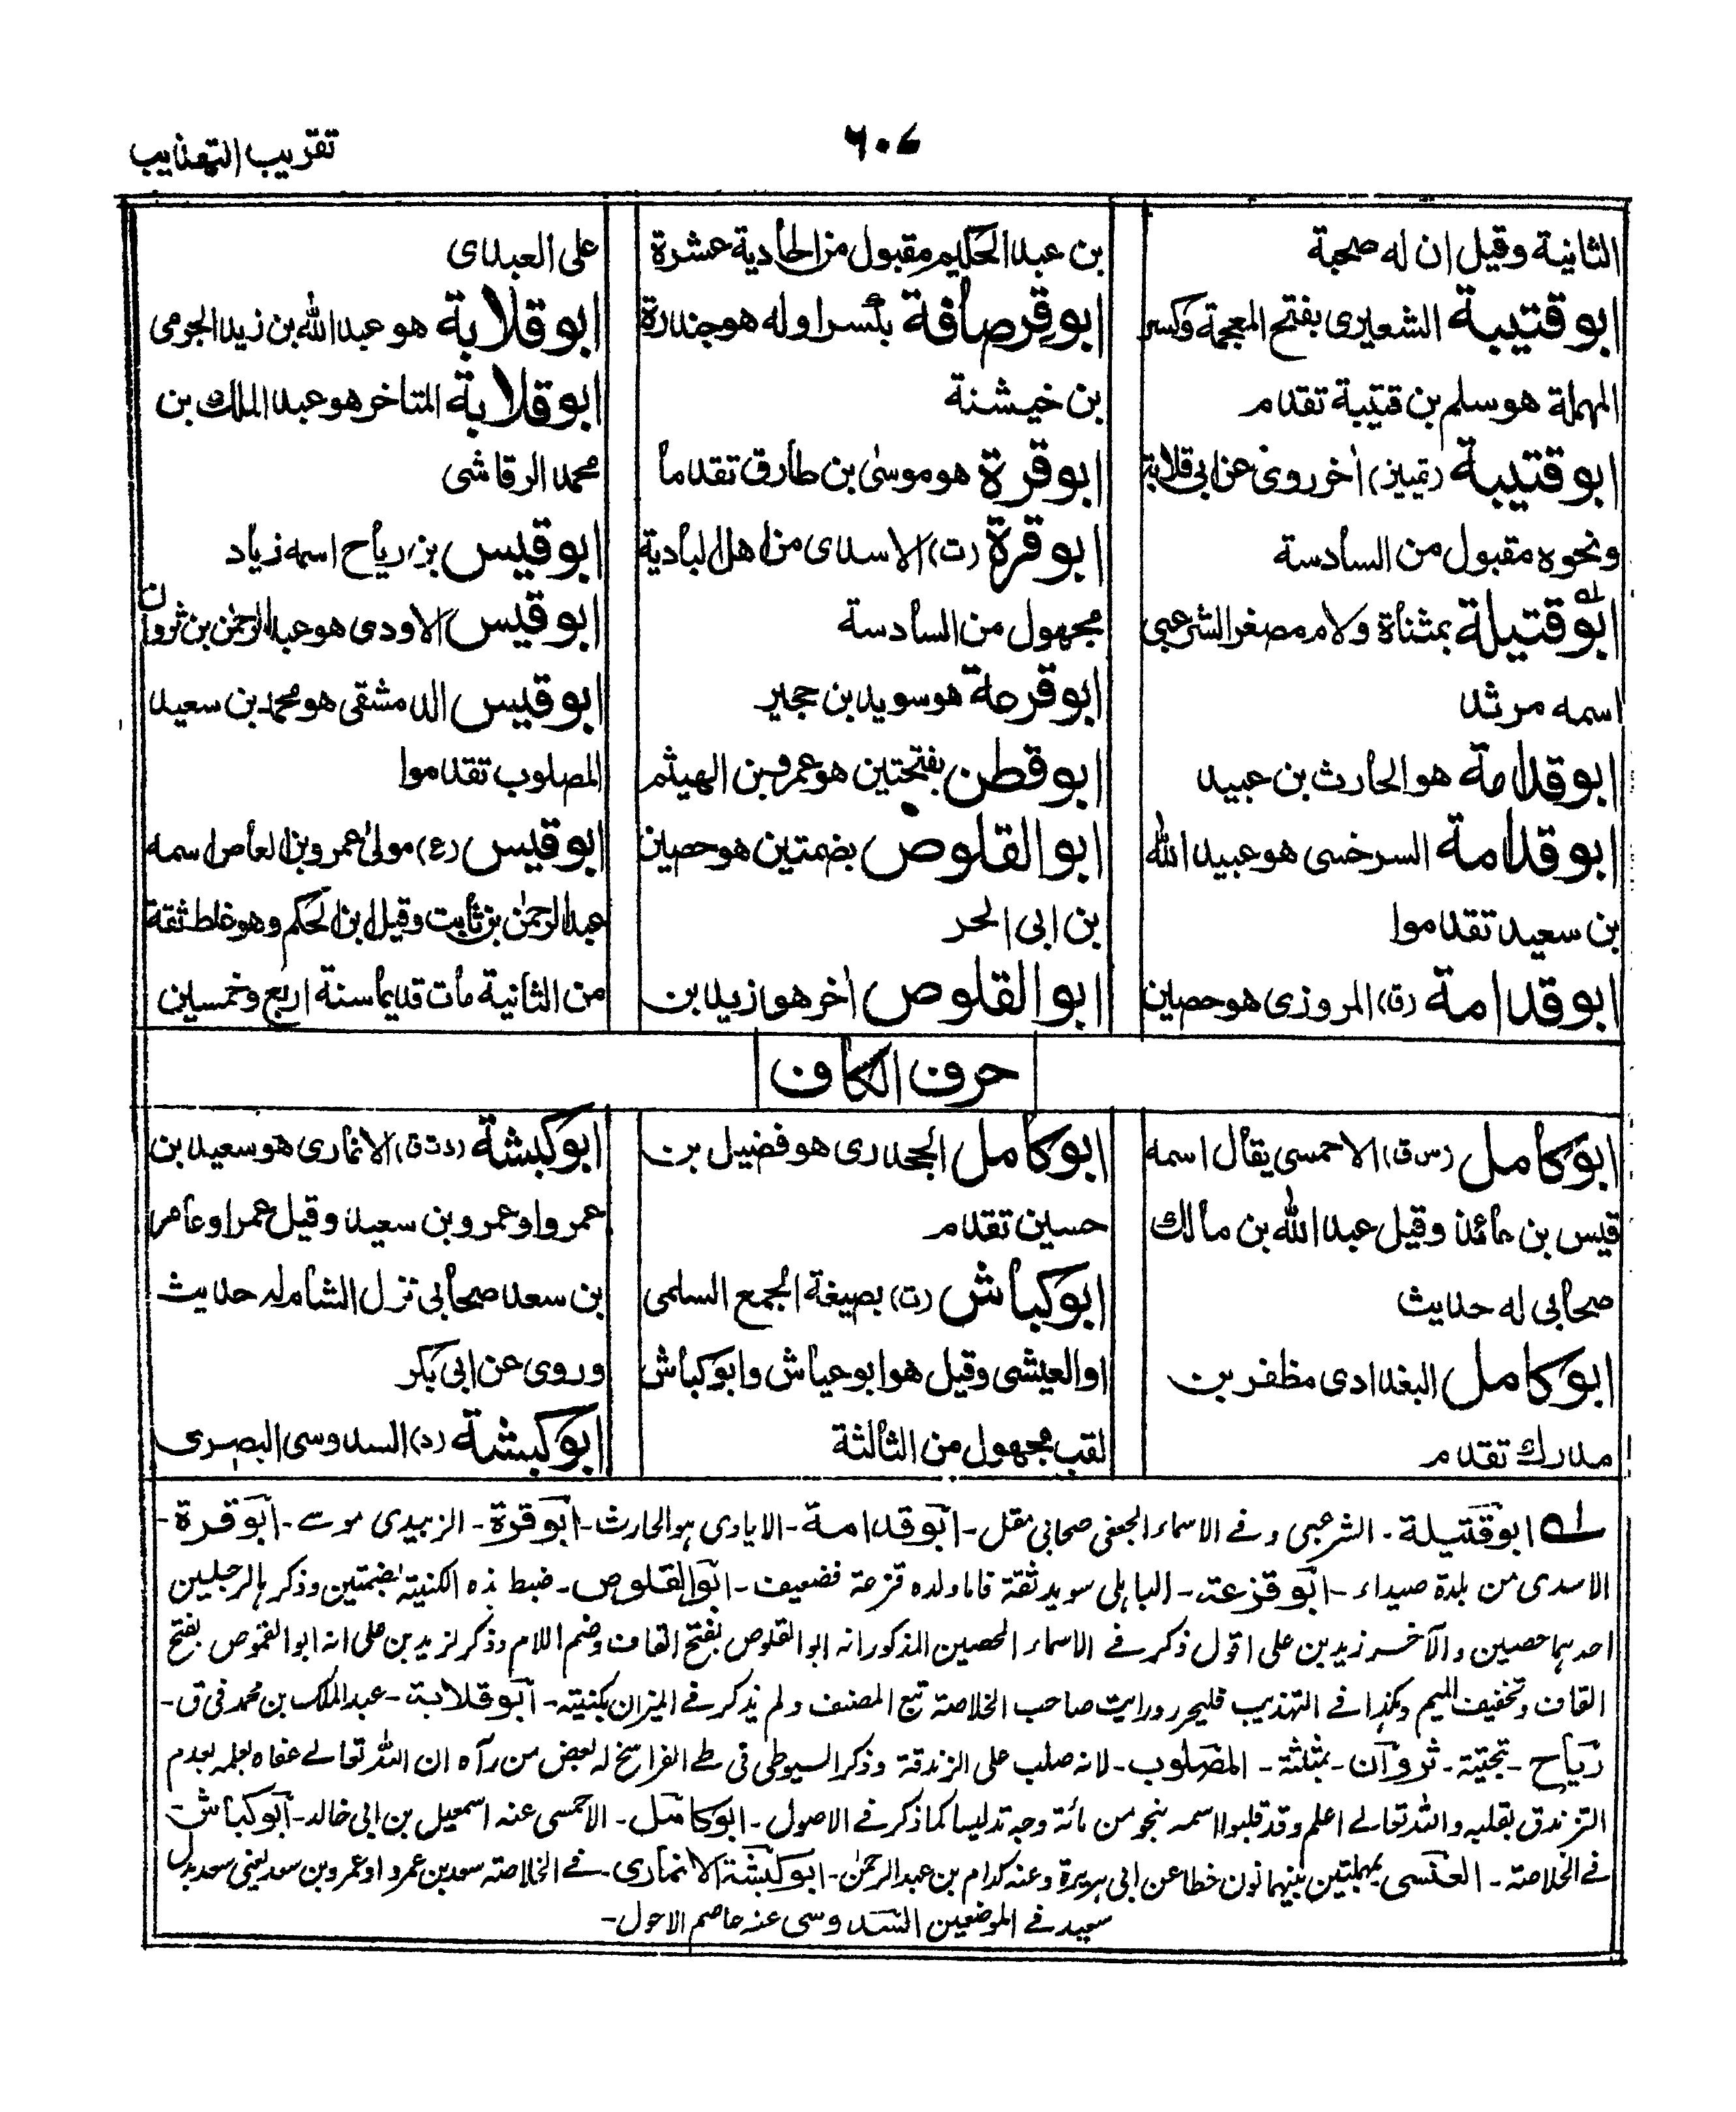 تقريب التهذيب
٦٠٤
الثانية وقيل ان له صحبة
ابو قتيبة الشعيرى بفتح المعجمة وكسر
المهملة هو سلم بن قتيبة تقدم
ابو قتيبة (تمييز) اخر روى عن ابى قلابة
ونحوه مقبول من السادسة
ابو قتيلة بمثناة ولام مصغر الشرعبى
اسمه مرثد
ابو قدامة هو الحارث بن عبيد
ابو قدامة السرخسى هو عبيد الله
بن سعيد تقدموا
ابو قدامة (ق) المروزى هو حصين
بن عبد الحكيم مقبول من الحادية عشرة
ابو قرصافة بكسر اوله هو جندرة
بن خيشنة
ابو قرة هو موسى بن طارق تقدما
ابو قرة (ت) الاسدى من اهل البادية
مجهول من السادسة
ابو قزعة هو سويد بن حجير
ابو قطن بفتحتين هو عمرو بن الهيثم
ابو القلوص بضمتين هو حصين
بن ابى الحر
ابو القلوص اخر هو ازيد بن
على العبدى
ابو قلابة هو عبد الله بن زيد الجرمى
ابو قلابة المتاخر هو عبد الملك بن
محمد الرقاشى
ابو قيس بن رياح اسمه زياد
ابو قيس الاودى هو عبد الرحمٰن بن ثروان
ابو قيس الدمشقى هو محمد بن سعيد
المصلوب تقدموا
ابو قيس (ع) مولى عمرو بن العاص اسمه
عبد الرحمٰن بن ثابت وقيل ابن الحكم وهو غلط ثقة
من الثانية مات قديما سنة اربع وخمسين
حرف الكاف
ابو كامل (س ق) الاحمسى يقال اسمه
قيس بن عائذ وقيل عبد الله بن مالك
صحابى له حديث
ابو كامل البغدادى مظفر بن
مدرك تقدم
ابو كامل الجحدرى هو فضيل بن
حسين تقدم
ابو كباش (ت) بصيغة الجمع السلمى
او العيشى وقيل هو ابو عياش وابو كباش
لقب مجهول من الثالثة
ابو كبشة (د ت ق) الانمارى هو سعيد بن
عمرو او عمرو بن سعيد وقيل عمر او عامر
بن سعد صحابى نزل الشام له حديث
وروى عن ابى بكر
ابو كبشة (د) السدوسى البصرى
له ابو قتيلة - الشرعبى و فے الاسماء الجعفى صحابى مقل - ابو قدامة - الايادى ہو الحارث - ابو قرة - الزبيدى موسے - ابو قرة -
الاسدى من بلدة صيداء - ابو قزعة - الباہلى سويد ثقة فاما ولده قزعة فضعيف - ابو القلوص - ضبط ہذہ الكنية بضمتين وذكر ہا لرجلين
احدہما حصين والآخر زيد بن على اقول ذكر فے الاسماء الحصين المذكور انہ ابو القلوص بفتح القاف وضم اللام وذكر لزيد بن على انہ ابو القموص بفتح
القاف وتخفيف الميم وہكذا فے التہذيب فليحرر ورايت صاحب الخلاصة تبع المصنف ولم يذكر فے الميزان بكنيتہ - ابو قلابة - عبد الملك بن محمد فى ق -
رياح - تحتية - ثروان - بمثلثة - المصلوب - لانہ صلب على الزندقة وذكر السيوطى فى طے الفراسخ لہ بعض من رآہ ان اللہ تعالے عفاہ لعلمہ بعدم
التزندق بقلبہ واللہ تعالے اعلم وقد قلبوا اسمہ بنحو من مائة وجہ تدليسا كما ذكر فے الاصول - ابو كامل - الاحمسى عنہ اسمعيل بن ابى خالد - ابو كباش
فے الخلاصة - العنسى بمہملتين بينہما نون خطا عن ابى ہريرة وعنہ كدام بن عبد الرحمٰن - ابو كبشة الانمارى - فے الخلاصة سعد بن عمرو او عمرو بن سعد يعنى سعد بدل
سعيد فے الموضعين السدوسى عنہ عاصم الاحول -